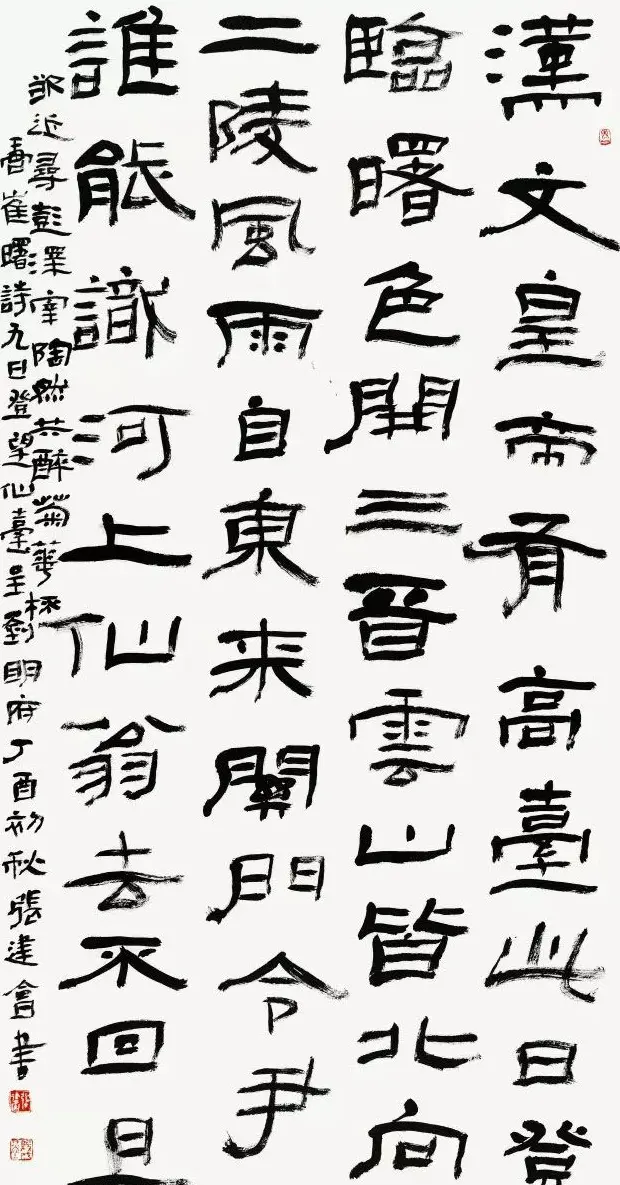 漢文皇帝有高臺此日登
臨曙色開三晉雲山皆北向
二陵風雨自東來關門令尹
誰能識河上仙翁去不回且
欲近尋彭澤宰陶然共醉菊華杯
崔曙詩九日登望仙臺呈劉明府丁酉初秋張建會書